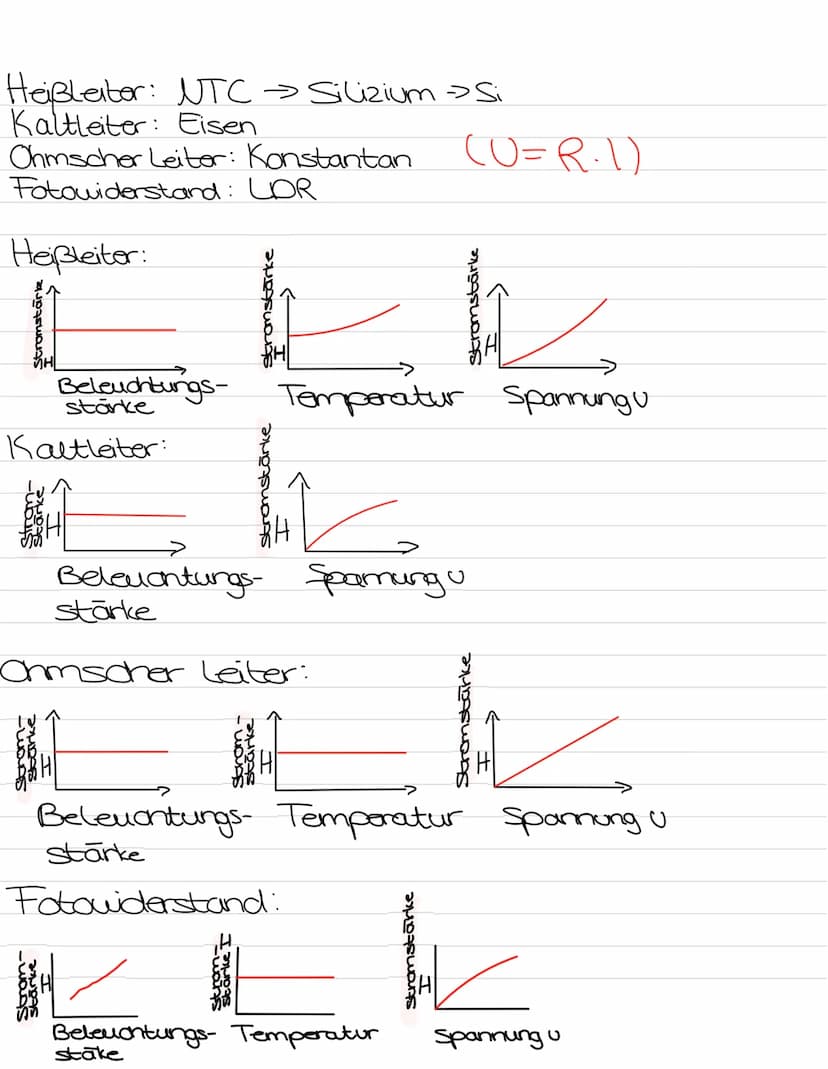 Heißleiter: NTC → Silizium → Si
Kaltleiter: Eisen
Ohmscher Leiter: Konstantan (U=R·I)
Fotowiderstand: LDR
Heißleiter:
Stromstärke I
Beleuchtungs-
stärke
Stromstärke I
Temperatur
Stromstärke I
Spannung U
Kaltleiter:
Strom-
stärke I
Beleuchtungs-
stärke
Stromstärke I
Spannung U
Ohmscher Leiter:
Strom-
stärke I
Beleuchtungs-
stärke
Strom-
stärke I
Temperatur
Stromstärke I
Spannung U
Fotowiderstand:
Strom-
stärke I
Beleuchtungs-
stäke
Strom-
stärke I
Temperatur
Stromstärke I
Spannung U